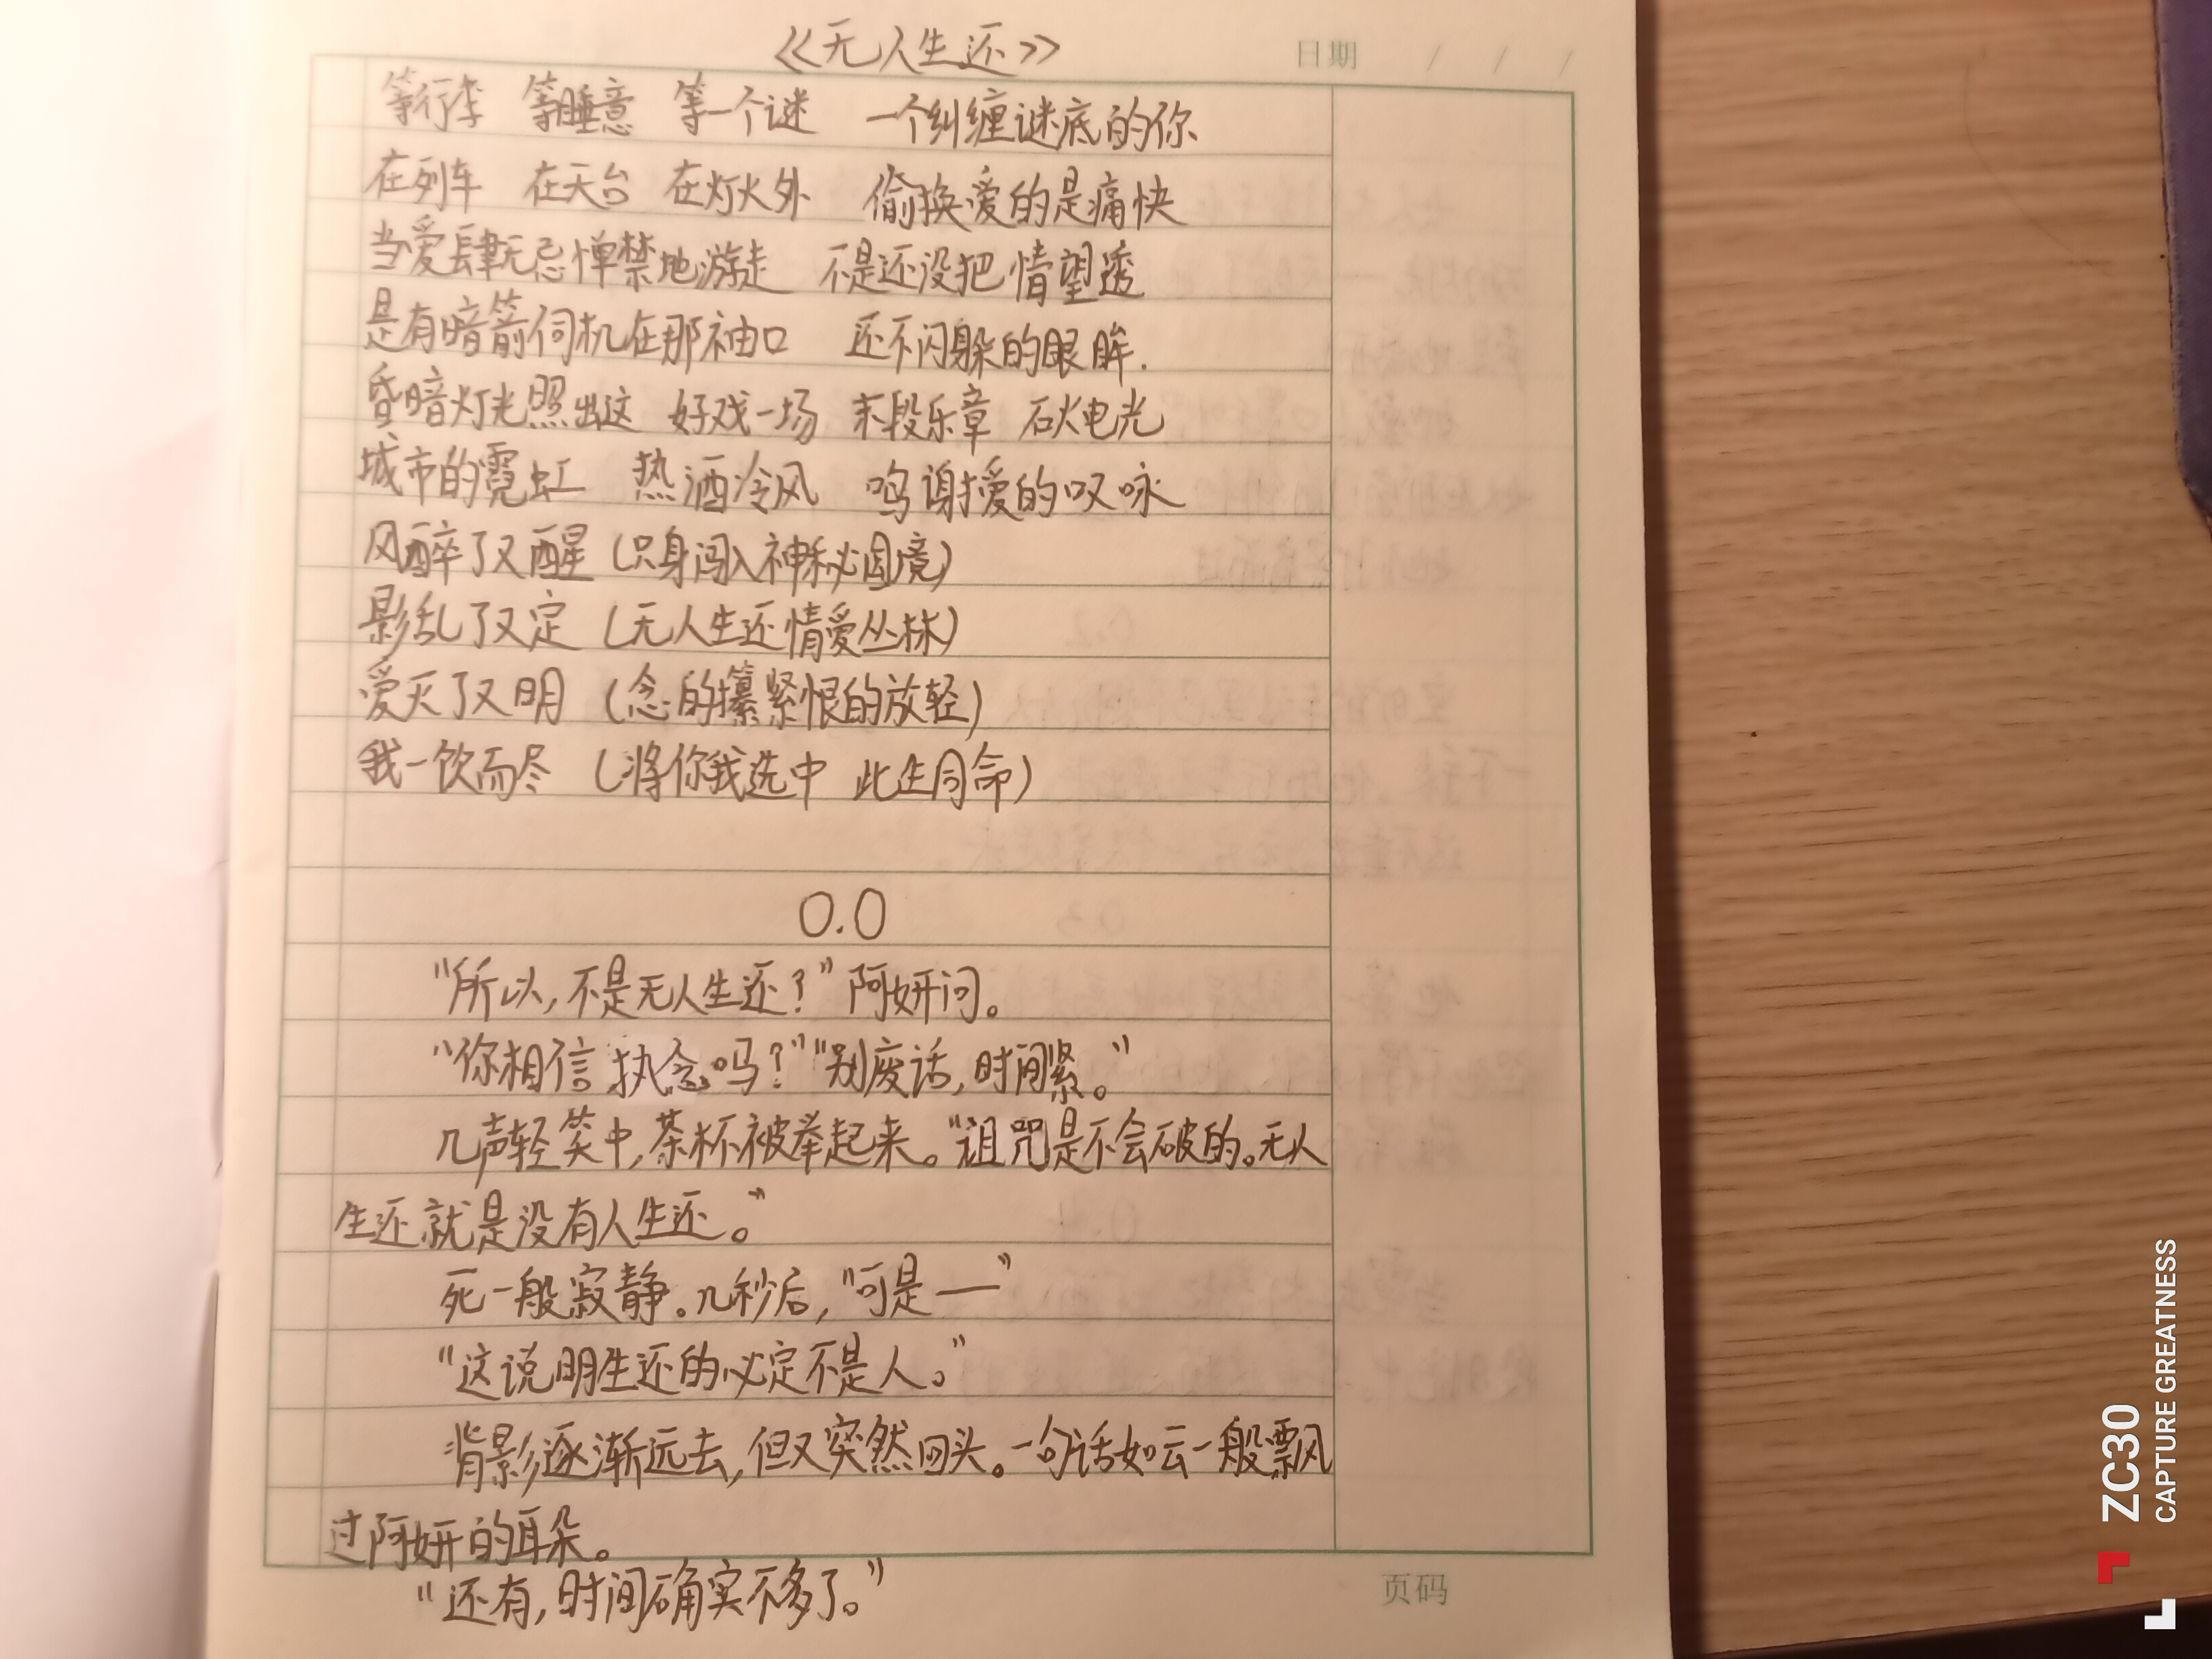 《无人生还》
日期 / / /
等行李 等睡意 等一个谜 一个纠缠谜底的你
在列车 在天台 在灯火外 偷换爱的是痛快
当爱肆无忌惮禁地游走 不是还没把情望透
是有暗箭伺机在那袖口 还不闪躲的眼眸.
昏暗灯光照出这 好戏一场 末段乐章 石火电光
城市的霓虹 热酒冷风 鸣谢挚爱的叹咏
风醉了又醒(只身闯入神秘困境)
影乱了又定(无人生还情爱丛林)
爱灭了又明(念的攥紧恨的放轻)
我一饮而尽(将你我选中 此生同命)
0.0
“所以,不是无人生还?”阿妍问。
“你相信执念吗?”“别废话,时间紧。”
几声轻笑中,茶杯被举起来。“诅咒是不会破的。无人
生还就是没有人生还。”
死一般寂静。几秒后,“可是——”
“这说明生还的必定不是人。”
背影逐渐远去,但又突然回头。一句话如云一般飘
过阿妍的耳朵。
“还有,时间确实不多了。”
页码
ZC30
CAPTURE GREATNESS